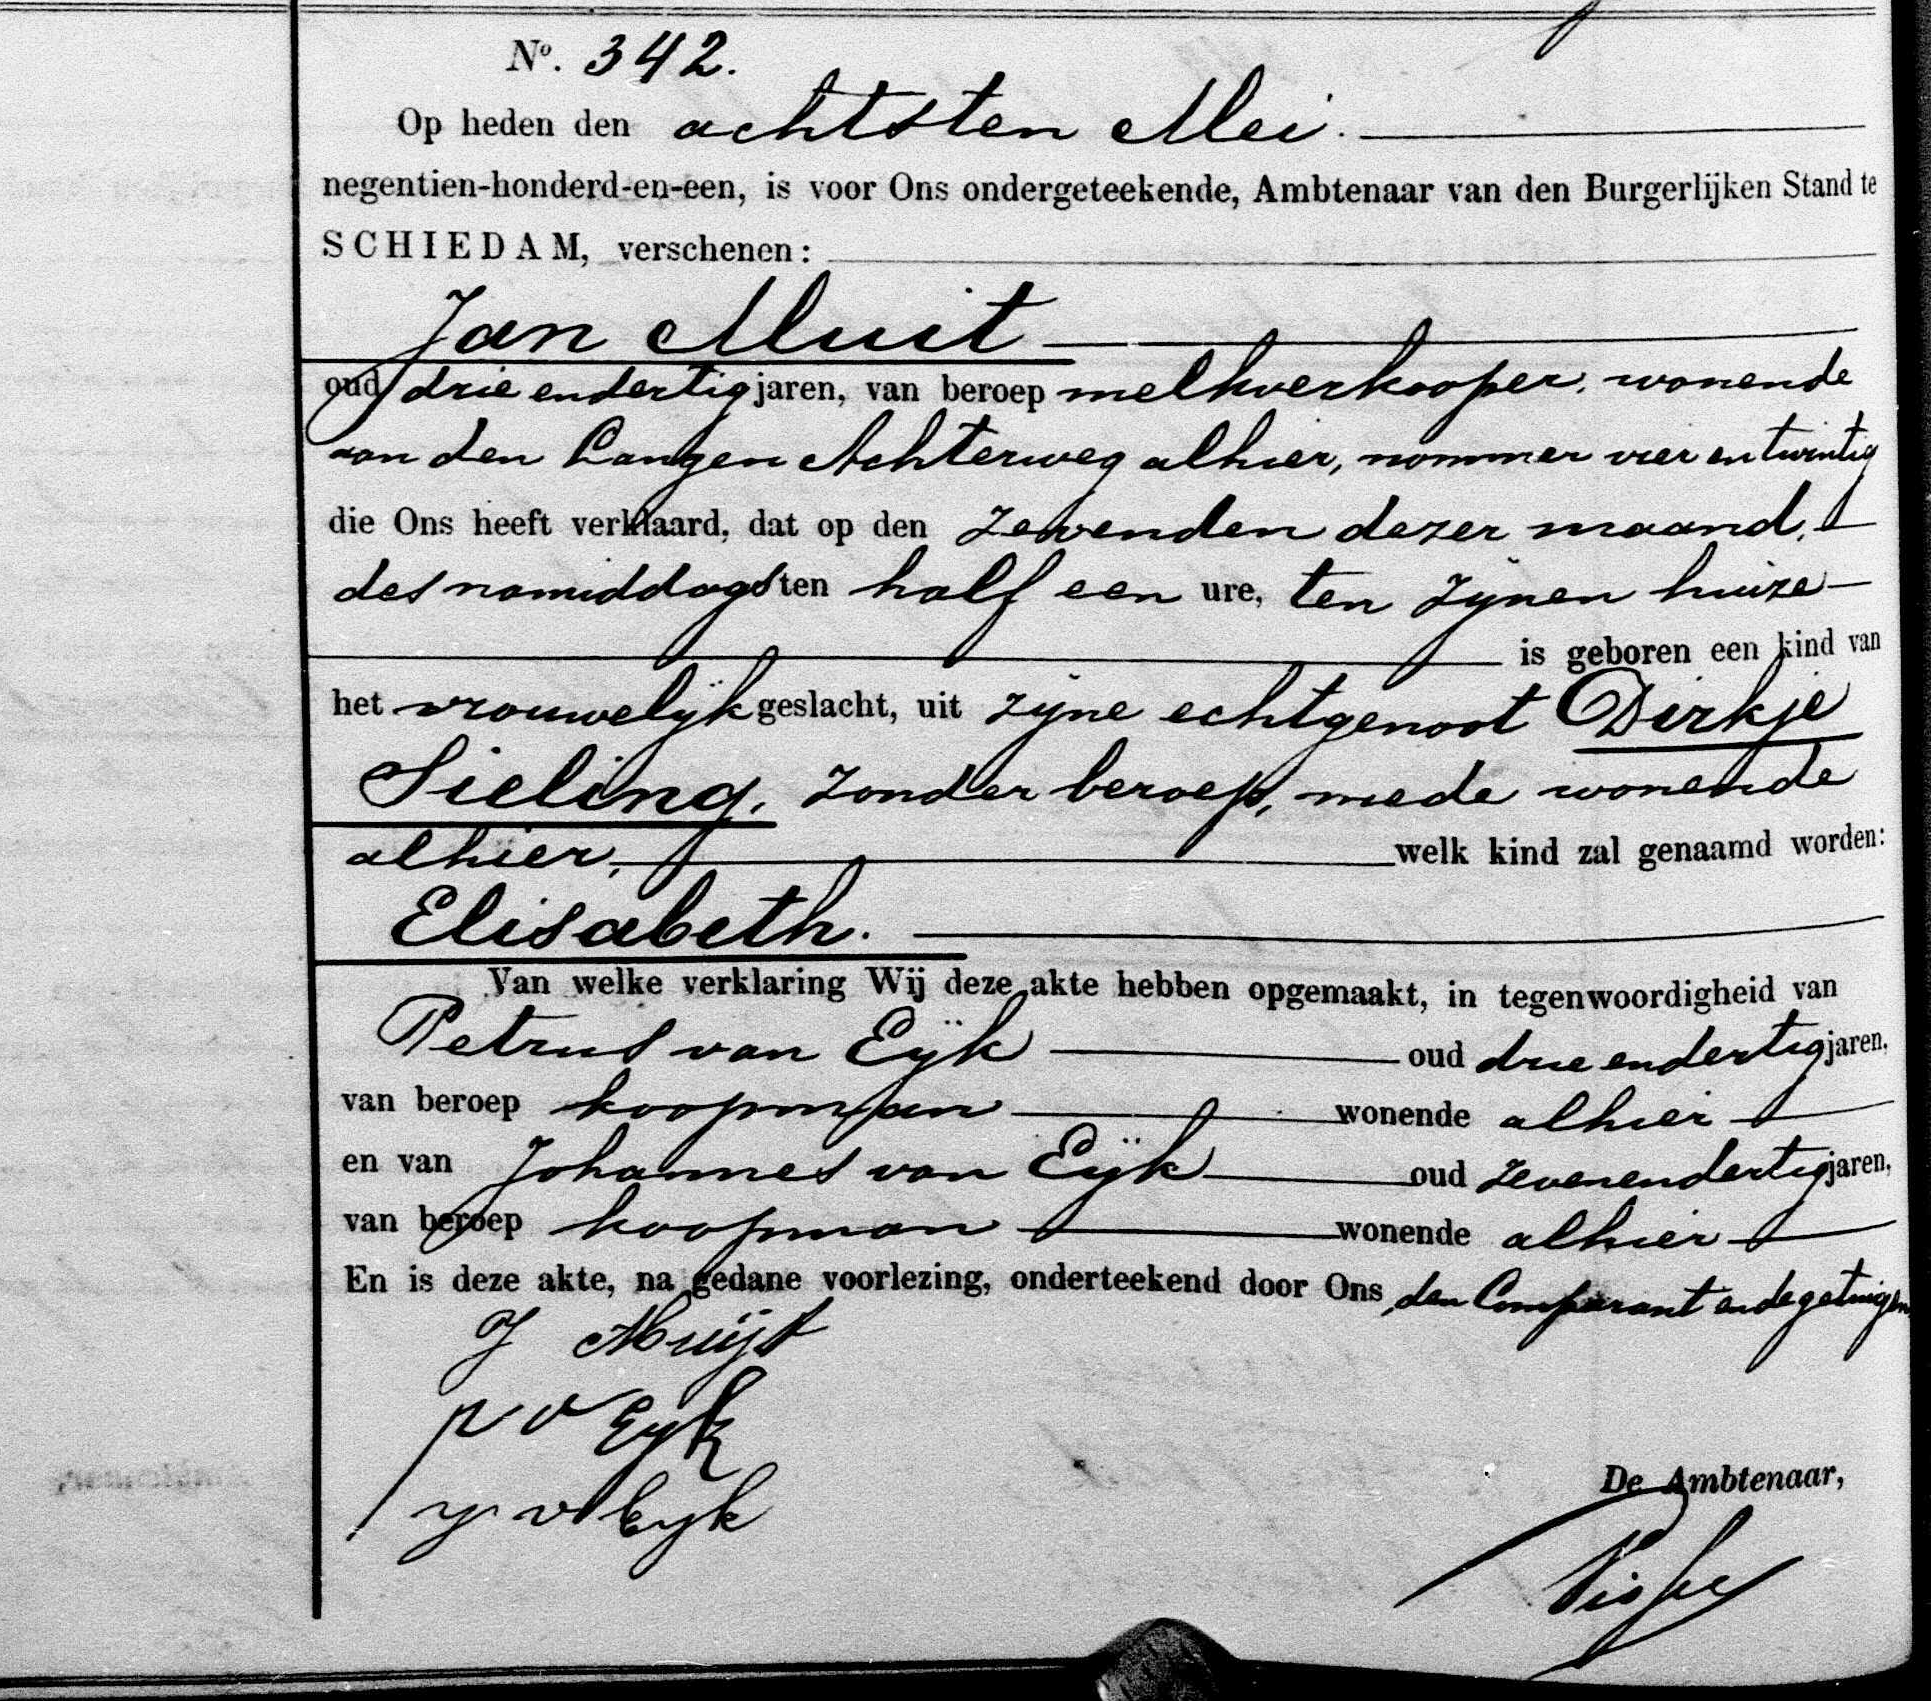 Nº. 342.
Op heden den achtsten Mei.
negentien-honderd-en-een, is voor Ons ondergeteekende, Ambtenaar van den Burgerlijken Stand te
SCHIEDAM, verschenen:
Jan Muit
oud drie endertig jaren, van beroep melkverkooper, wonende
aan den Langen Achterweg alhier, nommer vier en twintig
die Ons heeft verklaard, dat op den zevenden dezer maand,
des namiddags ten half een ure, ten zijnen huize
is geboren een kind van
het vrouwelijk geslacht, uit zijne echtgenoot Dirkje
Sieling, zonder beroep, mede wonende
alhier, welk kind zal genaamd worden:
Elisabeth.
Van welke verklaring Wij deze akte hebben opgemaakt, in tegenwoordigheid van
Petrus van Eijk oud drie endertig jaren,
van beroep koopman wonende alhier
en van Johannes van Eijk oud zevenendertig jaren,
van beroep koopman wonende alhier
En is deze akte, na gedane voorlezing, onderteekend door Ons den Comparant en de getuigen
J Muijt
P v Eyk
J v Eyk
De Ambtenaar,